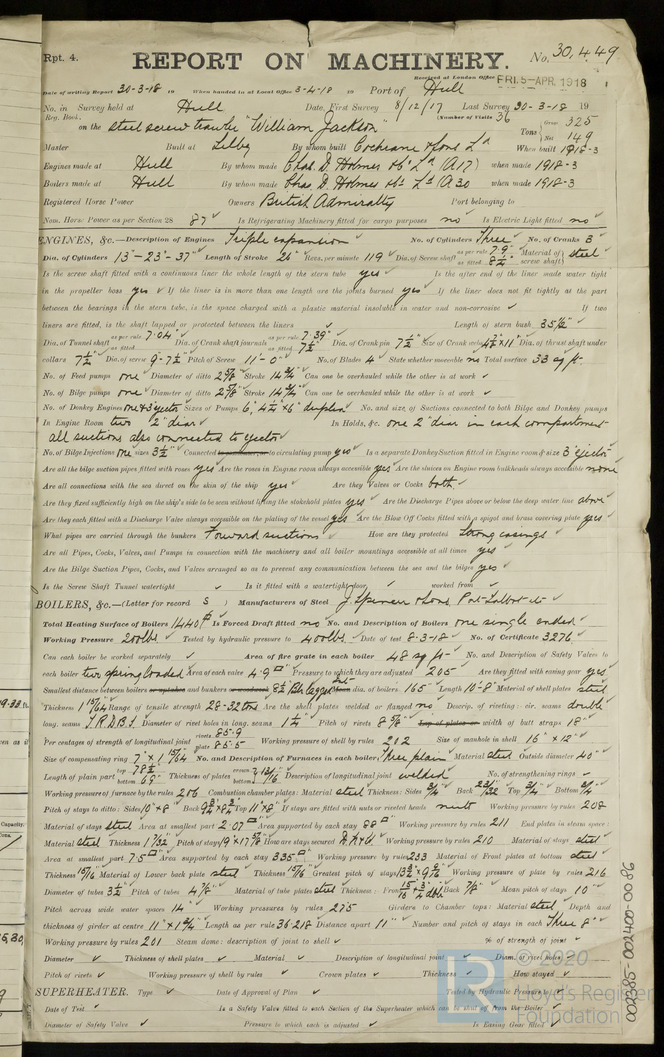 Rpt. 4.
REPORT ON MACHINERY.
No. 30,449
Received at London Office FRI. 5-APR. 1918
Date of writing Report 30-3-18 19 When handed in at Local Office 3-4-18 19 Port of Hull
No. in Survey held at Hull Date, First Survey 8/12/17 Last Survey 30-3-18 19
Reg. Book. (Number of Visits 36
on the steel screw trawler "William Jackson" Tons Gross 325 Net 149
Master Built at Selby By whom built Cochrane & Sons Ld When built 1918-3
Engines made at Hull By whom made Chas. D. Holmes & Co Ld (A17) when made 1918-3
Boilers made at Hull By whom made Chas D. Holmes & Co Ld (A30 when made 1918-3
Registered Horse Power Owners British Admiralty Port belonging to
Nom. Horse Power as per Section 28 87 Is Refrigerating Machinery fitted for cargo purposes no Is Electric Light fitted no
ENGINES, &c.—Description of Engines Triple expansion No. of Cylinders Three No. of Cranks 3
Dia. of Cylinders 13"-23"-37" Length of Stroke 26" Revs. per minute 119 Dia. of Screw shaft as per rule 7.9 as fitted 8½ Material of screw shaft steel
Is the screw shaft fitted with a continuous liner the whole length of the stern tube yes Is the after end of the liner made water tight
in the propeller boss yes If the liner is in more than one length are the joints burned yes If the liner does not fit tightly at the part
between the bearings in the stern tube, is the space charged with a plastic material insoluble in water and non-corrosive If two
liners are fitted, is the shaft lapped or protected between the liners Length of stern bush 35½"
Dia. of Tunnel shaft as per rule 7.04 as fitted Dia. of Crank shaft journals as per rule 7.39 as fitted 7½ Dia. of Crank pin 7½" Size of Crank webs 4¾ x 11 Dia. of thrust shaft under
collars 7½ Dia. of screw 9-7½ Pitch of Screw 11-0" No. of Blades 4 State whether moveable no Total surface 33 sq ft.
No. of Feed pumps one Diameter of ditto 2⅝ Stroke 14¾ Can one be overhauled while the other is at work
No. of Bilge pumps one Diameter of ditto 2⅝ Stroke 14¾ Can one be overhauled while the other is at work
No. of Donkey Engines one & 3" ejector Sizes of Pumps 6", 4½ x 6" duplex No. and size of Suctions connected to both Bilge and Donkey pumps
In Engine Room two 2" diar In Holds, &c. one 2" diar in each compartment
all suctions also connected to ejector
No. of Bilge Injections one sizes 3½ Connected to circulating pump yes Is a separate Donkey Suction fitted in Engine room & size 3" ejector
Are all the bilge suction pipes fitted with roses yes Are the roses in Engine room always accessible yes Are the sluices on Engine room bulkheads always accessible none
Are all connections with the sea direct on the skin of the ship yes Are they Valves or Cocks both
Are they fixed sufficiently high on the ship's side to be seen without lifting the stokehold plates yes Are the Discharge Pipes above or below the deep water line above
Are they each fitted with a Discharge Valve always accessible on the plating of the vessel yes Are the Blow Off Cocks fitted with a spigot and brass covering plate yes
What pipes are carried through the bunkers Forward suctions How are they protected Strong casings
Are all Pipes, Cocks, Valves, and Pumps in connection with the machinery and all boiler mountings accessible at all times yes
Are the Bilge Suction Pipes, Cocks, and Valves arranged so as to prevent any communication between the sea and the bilges yes
Is the Screw Shaft Tunnel watertight Is it fitted with a watertight door worked from
BOILERS, &c.—(Letter for record S) Manufacturers of Steel J. Spencer & Sons, Port Talbot
Total Heating Surface of Boilers 1440 Is Forced Draft fitted no No. and Description of Boilers one single ended
Working Pressure 200 lbs Tested by hydraulic pressure to 400 lbs Date of test 8-3-18 No. of Certificate 3276
Can each boiler be worked separately Area of fire grate in each boiler 48 sq ft No. and Description of Safety Valves to
each boiler two spring loaded Area of each valve 4.9 Pressure to which they are adjusted 205 Are they fitted with easing gear yes
Smallest distance between boilers and bunkers 8½ dia. of boilers 165" Length 10-8" Material of shell plates steel
Thickness 1 15/64 Range of tensile strength 28-32 tons Are the shell plates welded or flanged no Descrip. of riveting: cir. seams double
long. seams T.R.D.B.S. Diameter of rivet holes in long. seams 1¼ Pitch of rivets 8⅝ width of butt straps 18"
Per centages of strength of longitudinal joint rivets 85.9 plate 85.5 Working pressure of shell by rules 202 Size of manhole in shell 16" x 12"
Size of compensating ring 7" x 1 15/64 No. and Description of Furnaces in each boiler Three plain Material steel Outside diameter 40"
Length of plain part top 78½ bottom 69 Thickness of plates crown 13/16 bottom Description of longitudinal joint welded No. of strengthening rings
Working pressure of furnace by the rules 206 Combustion chamber plates: Material steel Thickness: Sides ¾ Back 23/32 Top ¾ Bottom ¾
Pitch of stays to ditto: Sides 10" x 8" Back Top 11" x 8" If stays are fitted with nuts or riveted heads nuts Working pressure by rules 208
Material of stays steel Area at smallest part 2.07 Area supported by each stay 88 Working pressure by rules 211 End plates in steam space:
Material steel Thickness 1 7/32 Pitch of stays 19" x 17⅝ How are stays secured D.N.&W. Working pressure by rules 210 Material of stays steel
Area at smallest part 7.5 Area supported by each stay 335 Working pressure by rules 233 Material of Front plates at bottom steel
Thickness 15/16 Material of Lower back plate steel Thickness 15/16 Greatest pitch of stays Working pressure of plate by rules 216
Diameter of tubes 3½ Pitch of tubes 4⅞ Material of tube plates steel Thickness: Front Back ⅞ Mean pitch of stays 10"
Pitch across wide water spaces 14" Working pressures by rules 275 Girders to Chamber tops: Material steel Depth and
thickness of girder at centre 11" x 1¾ Length as per rule 36.218 Distance apart 11" Number and pitch of stays in each Three 8"
Working pressure by rules 201 Steam dome: description of joint to shell % of strength of joint
Diameter Thickness of shell plates Material Description of longitudinal joint Diam. of rivet holes
Pitch of rivets Working pressure of shell by rules Crown plates Thickness How stayed
SUPERHEATER. Type Date of Approval of Plan Tested by Hydraulic Pressure to
Date of Test Is a Safety Valve fitted to each Section of the Superheater which can be shut off from the Boiler
Diameter of Safety Valve Pressure to which each is adjusted Is Easing Gear fitted
© 2020
Lloyd's Register
Foundation
002385-002400-0086